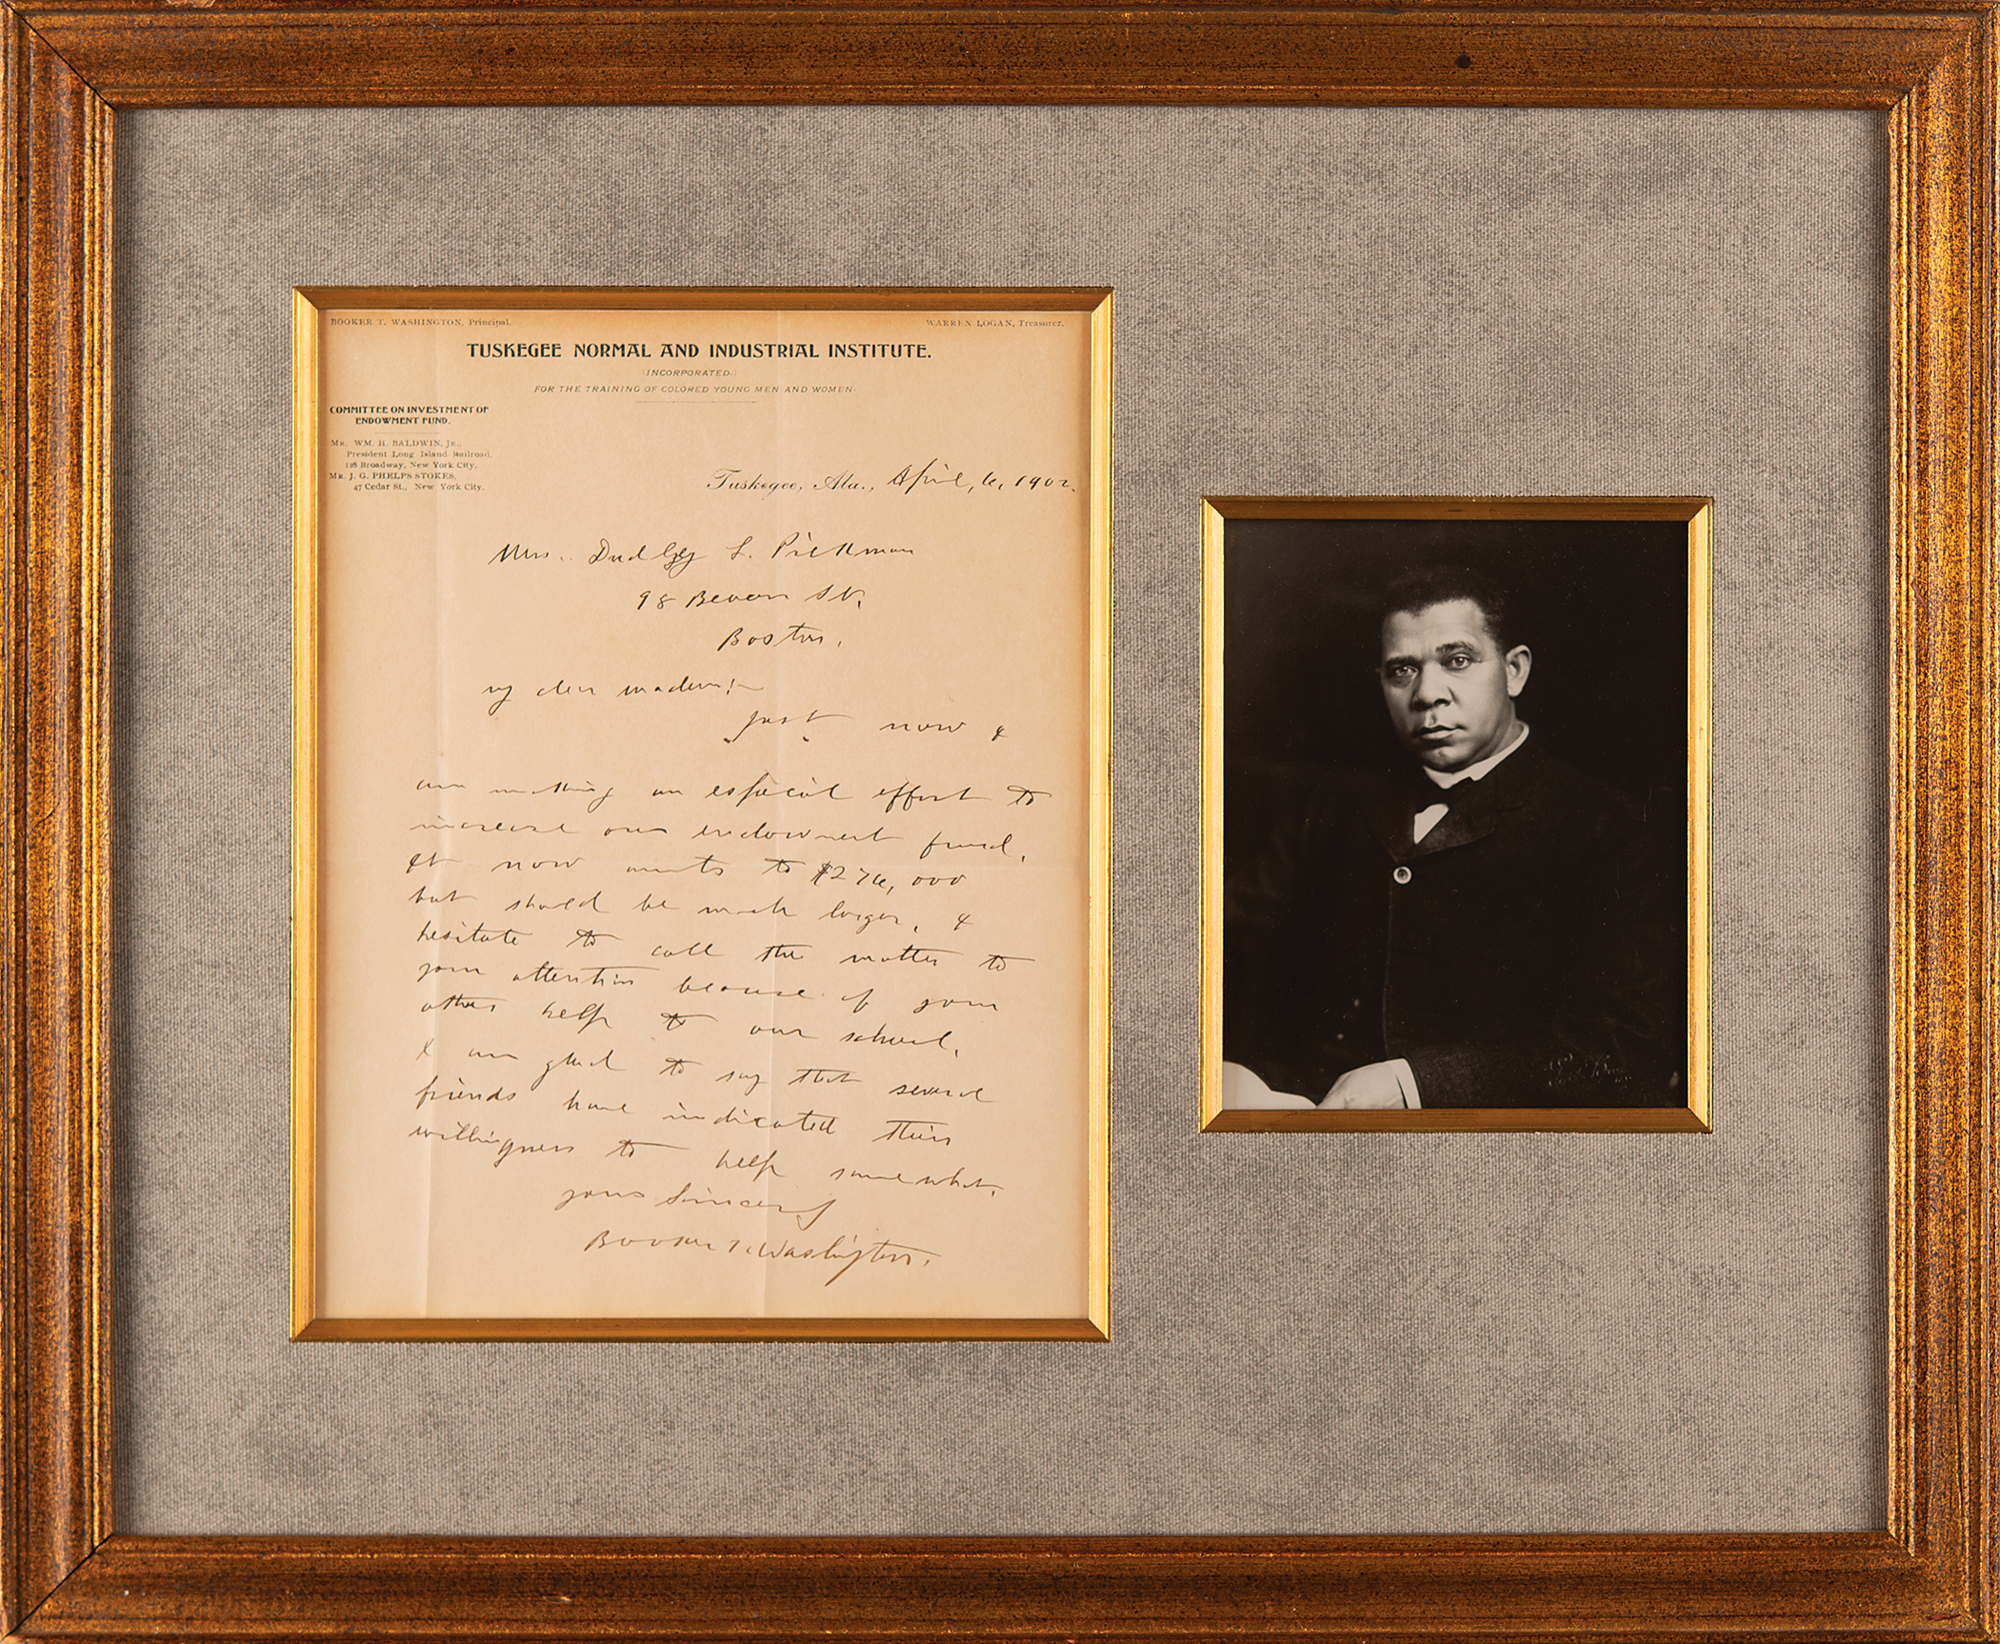 BOOKER T. WASHINGTON, Principal.
WARREN LOGAN, Treasurer.
TUSKEGEE NORMAL AND INDUSTRIAL INSTITUTE.
(INCORPORATED.)
FOR THE TRAINING OF COLORED YOUNG MEN AND WOMEN.
COMMITTEE ON INVESTMENT OF
ENDOWMENT FUND.
MR. WM. H. BALDWIN, JR.,
President Long Island Railroad,
128 Broadway, New York City.
MR. J. G. PHELPS STOKES,
47 Cedar St., New York City.
Tuskegee, Ala., April, 6, 1902.
Mrs. Dudley L. Pickman
98 Beacon St.
Boston,
My dear madam:-
Just now I
am making an especial effort to
increase our endowment fund.
It now amts to $276,000
but should be much larger. I
hesitate to call the matter to
your attention because of your
other help to our school.
I am glad to say that several
friends have indicated their
willingness to help somewhat.
Yours Sincerely
Booker T. Washington.